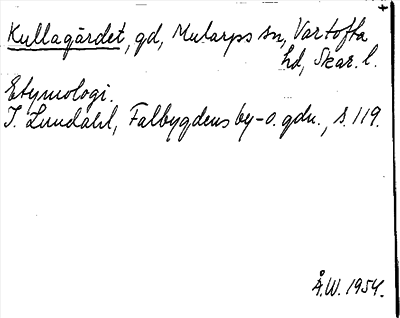 Kullagärdet, gd, Mularps sn, Vartofta
hd, Skar. l.
Etymologi.
I. Lundahl, Falbygdens by- o. gdn., s. 119.
Å.W. 1954.